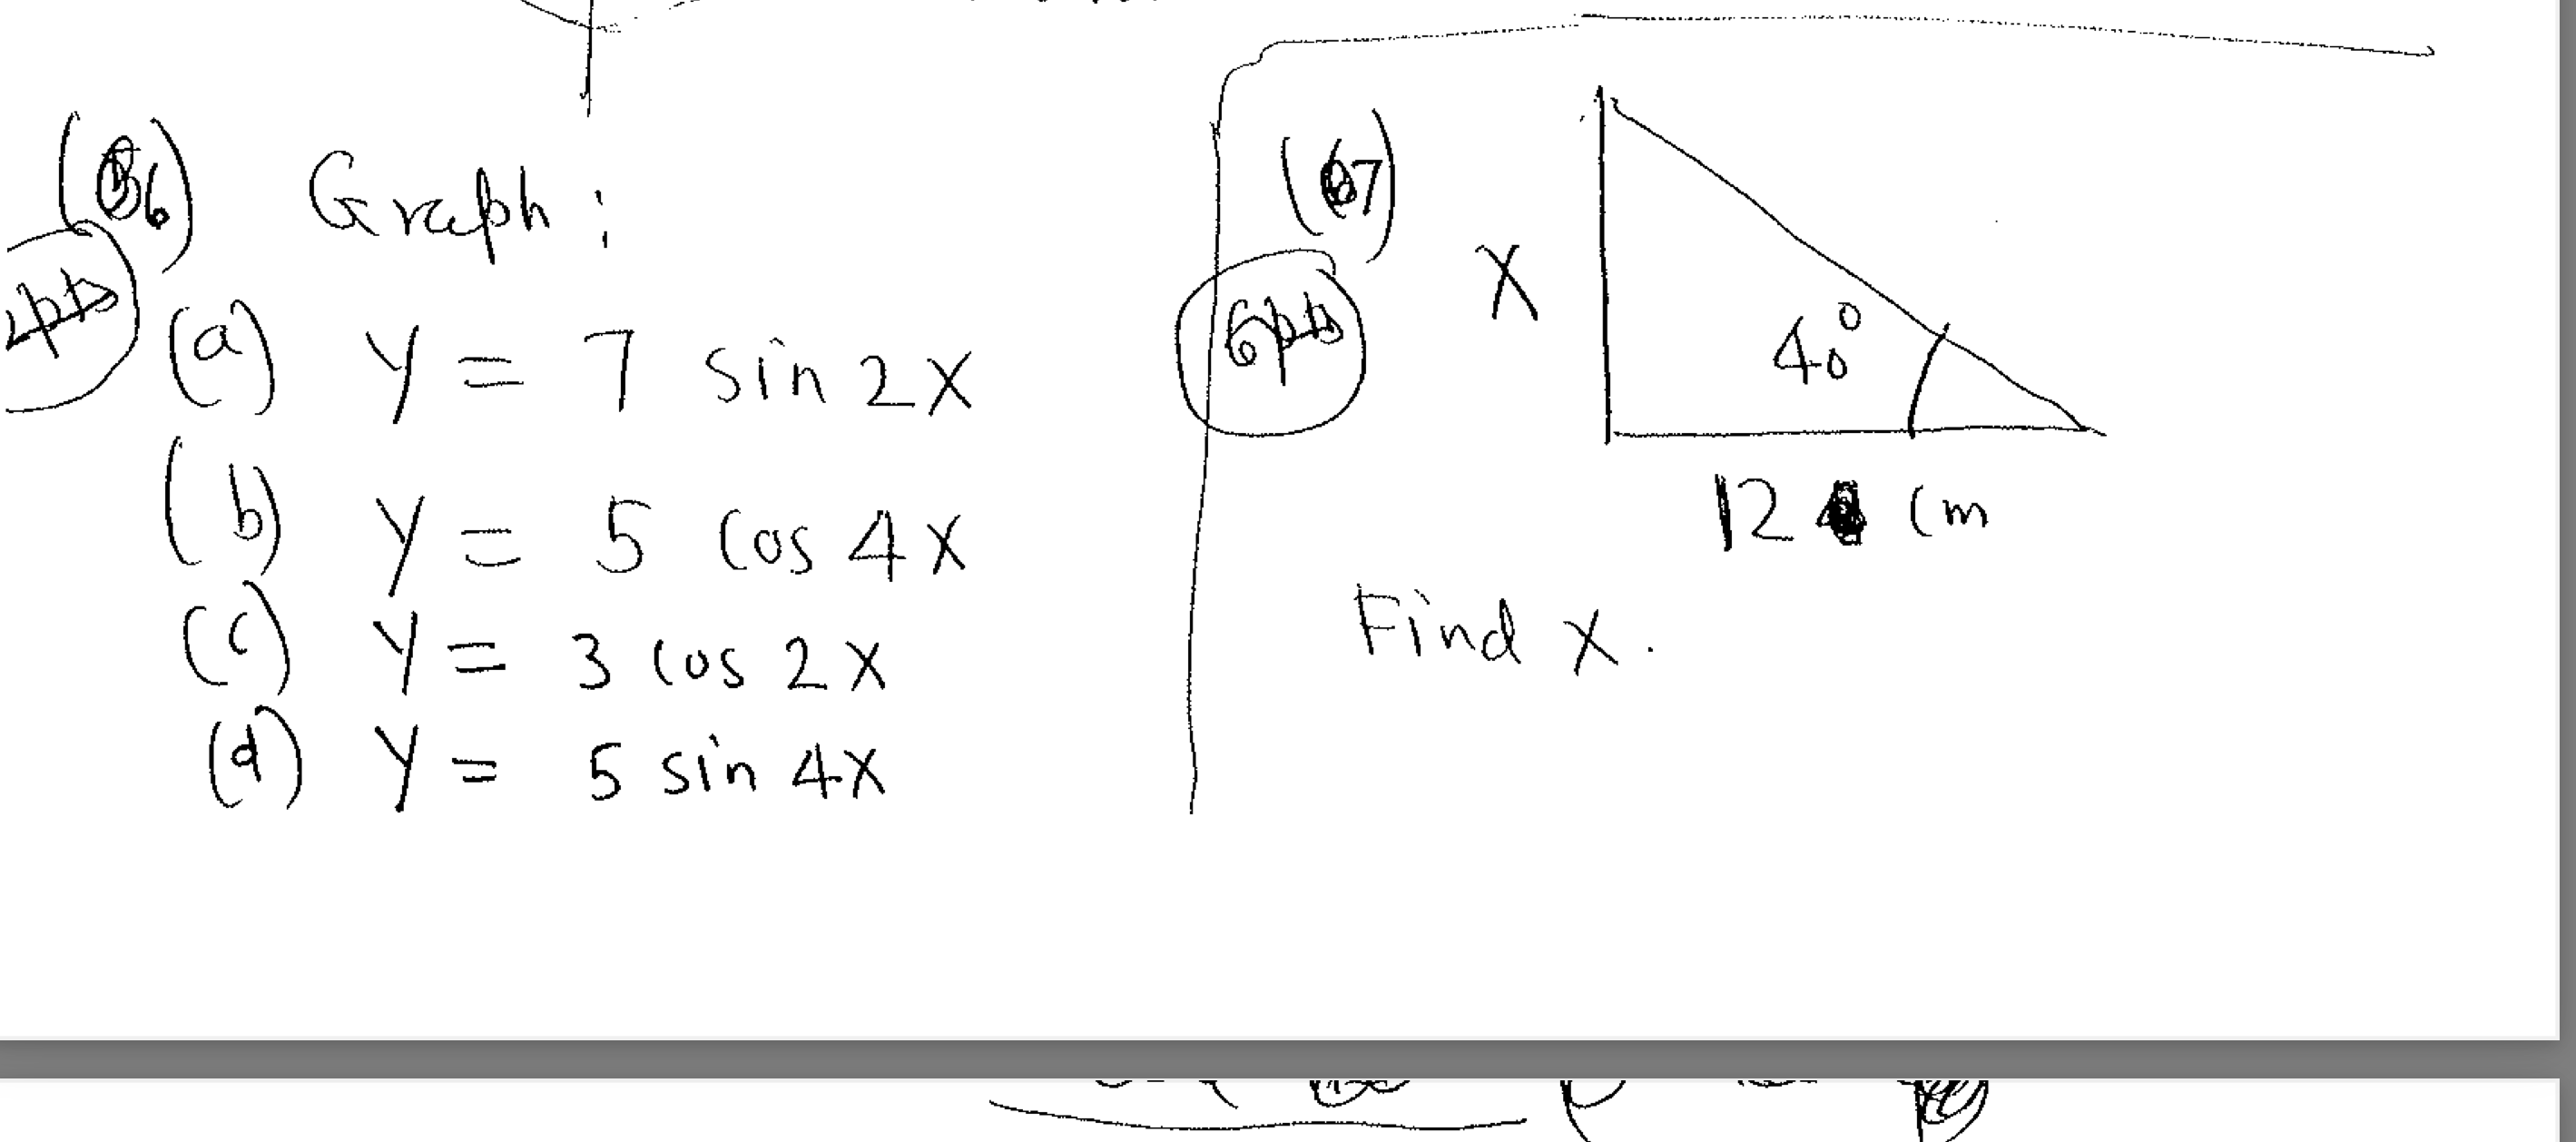 (6) Graph:
(a) y = 7 sin 2x
(b) y = 5 cos 4x
(c) y = 3 cos 2x
(d) y = 5 sin 4x
(7)
6pts
x
40°
12 cm
Find x.